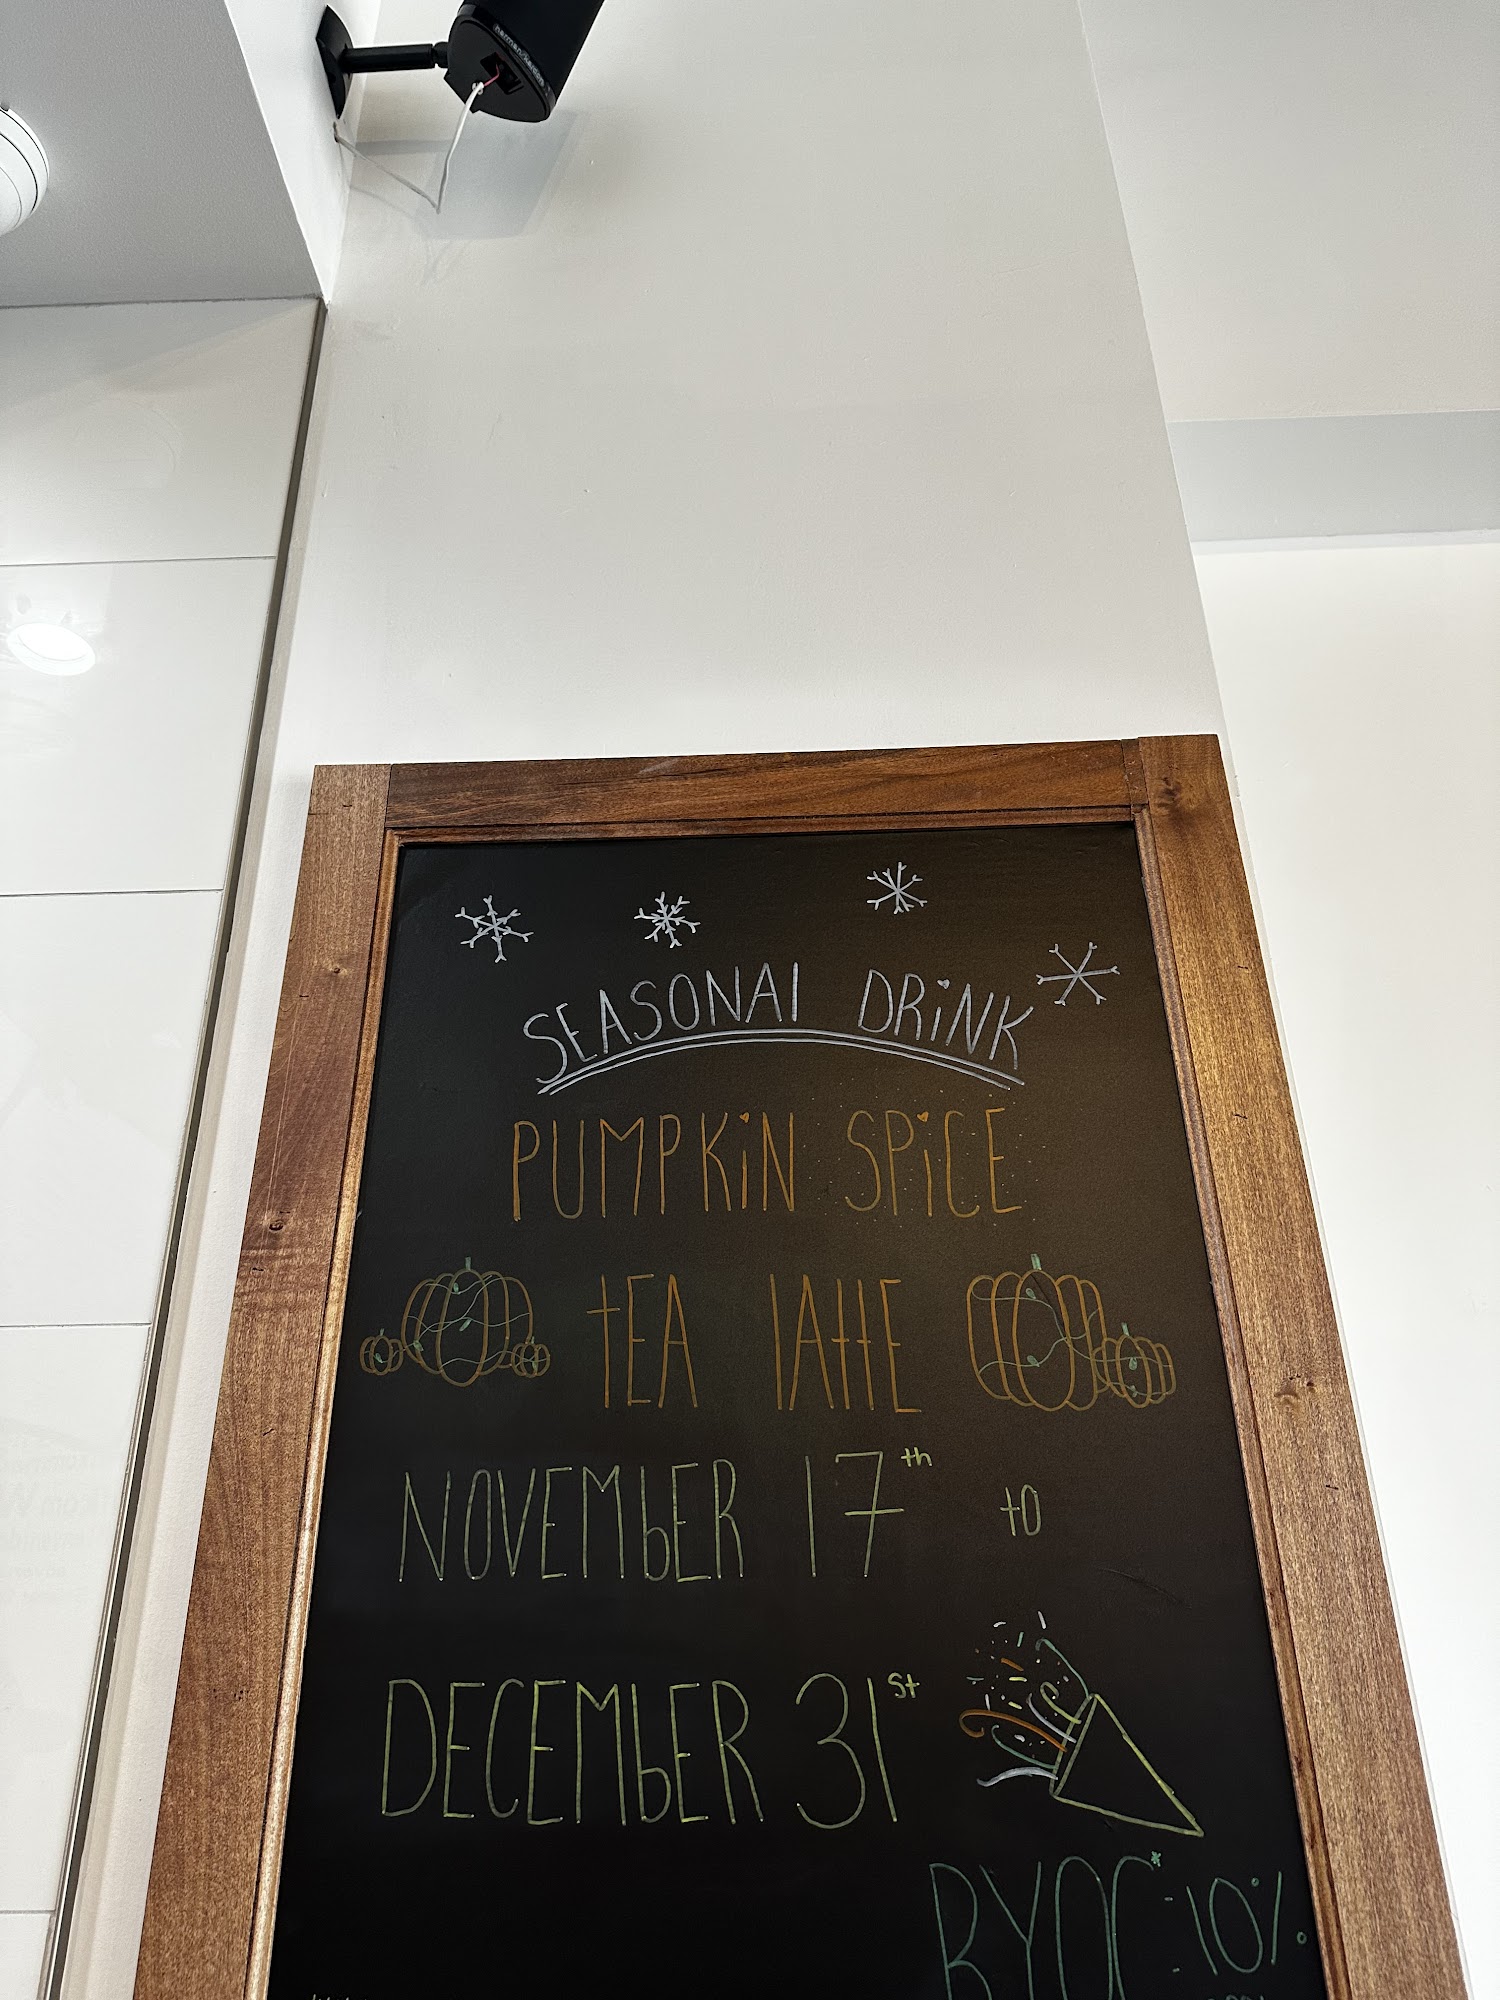 harman/kardon
SEASONAl DRiNK
PUMPKiN SPiCE
tEA lAttE
NOVEMbER 17th to
DECEMbER 31st
BYOC* : 10%